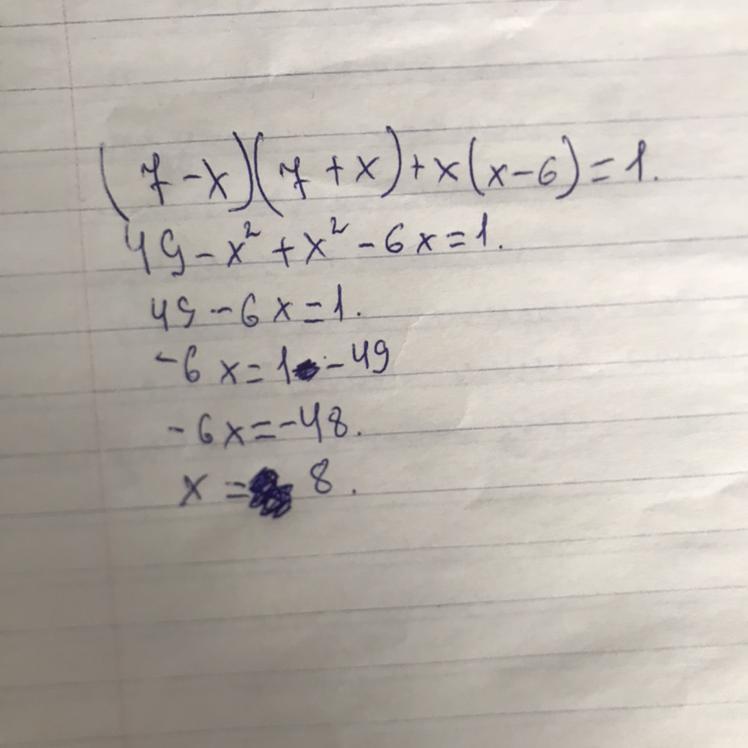 (7-x)(7+x)+x(x-6)=1.
49-x²+x²-6x=1.
49-6x=1.
-6x=1-49
-6x=-48.
x=8.